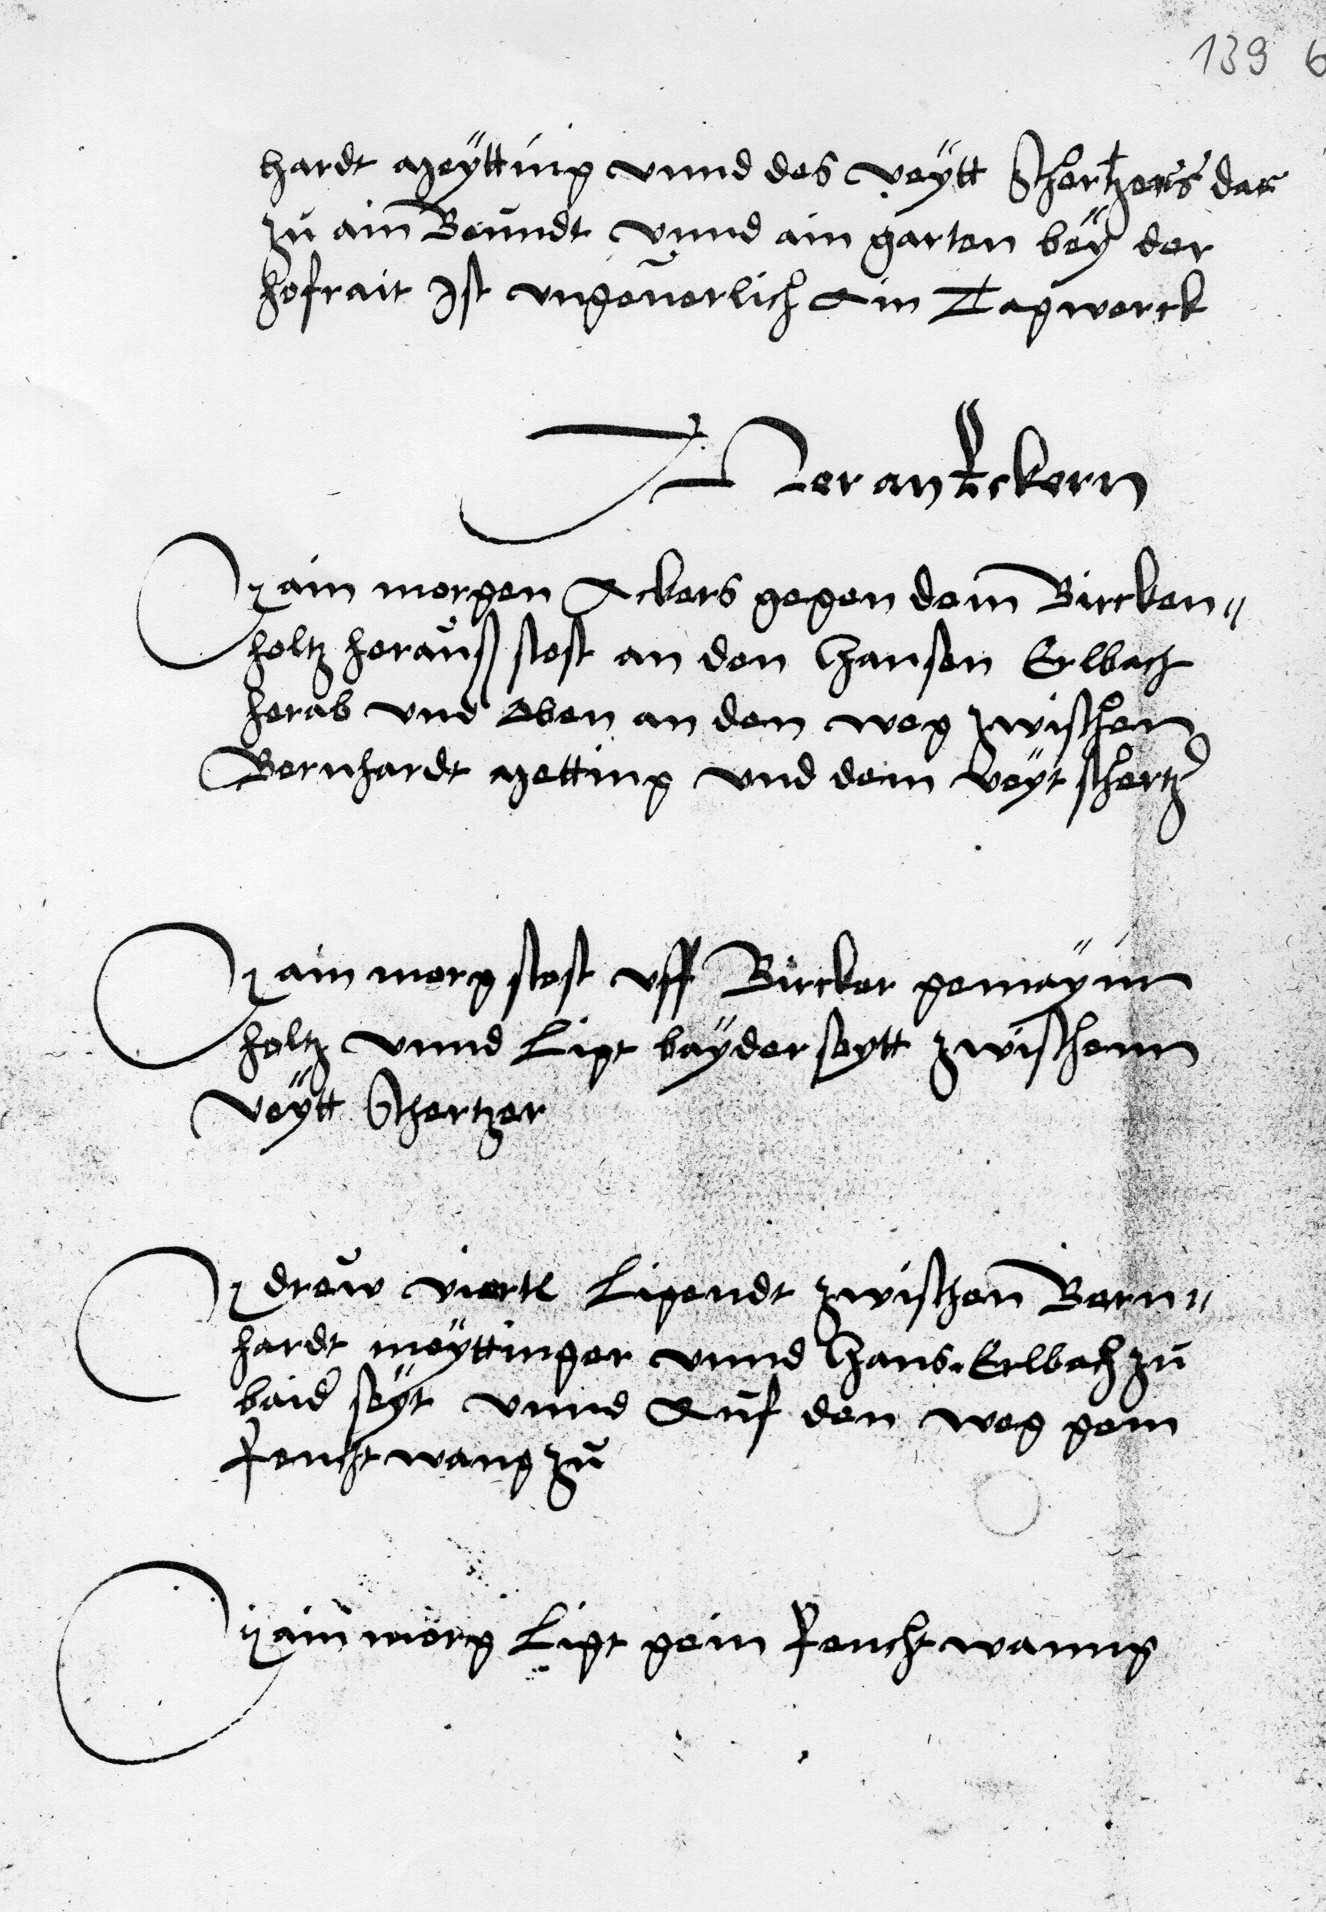 139 6
hardt Meÿtting vnnd des veÿtt Schertzers dar
zu ain Beundt vnnd ain garten beÿ der
hofrait Ist vngeuerlich Ain Tagwerck
Mer an Eckern
ain morgen Ackers gegen dem Bircken„
holtz herauß stost an den Hansen Erlbach
herab vnd oben an den weg zwischen
Bernhardt Metting vnd dem Veÿt schertz
ain morg stost vff Bircker gemaÿin
holtz vnnd Ligt baÿderseytt zwischenn
Veÿtt Schertzer
drew viertl Ligendt zwischen Bern„
hardt meÿttinger vnnd Hans Erlbach zu
baid seÿt vnnd Auf den weg gem
feuchtwang zu
ain morg Ligt gein feuchtwanng